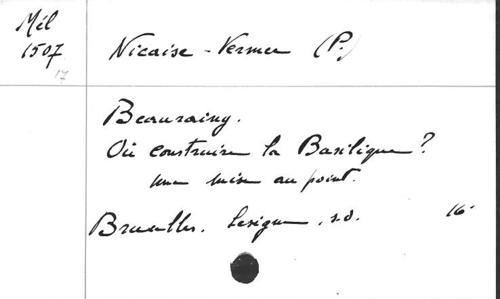 Mél
1507
17
Nicaise-Vermer (P.)
Beauraing.
Où construire la Basilique?
une mise au point.
Bruxelles. Lesigne, s.d. 16°